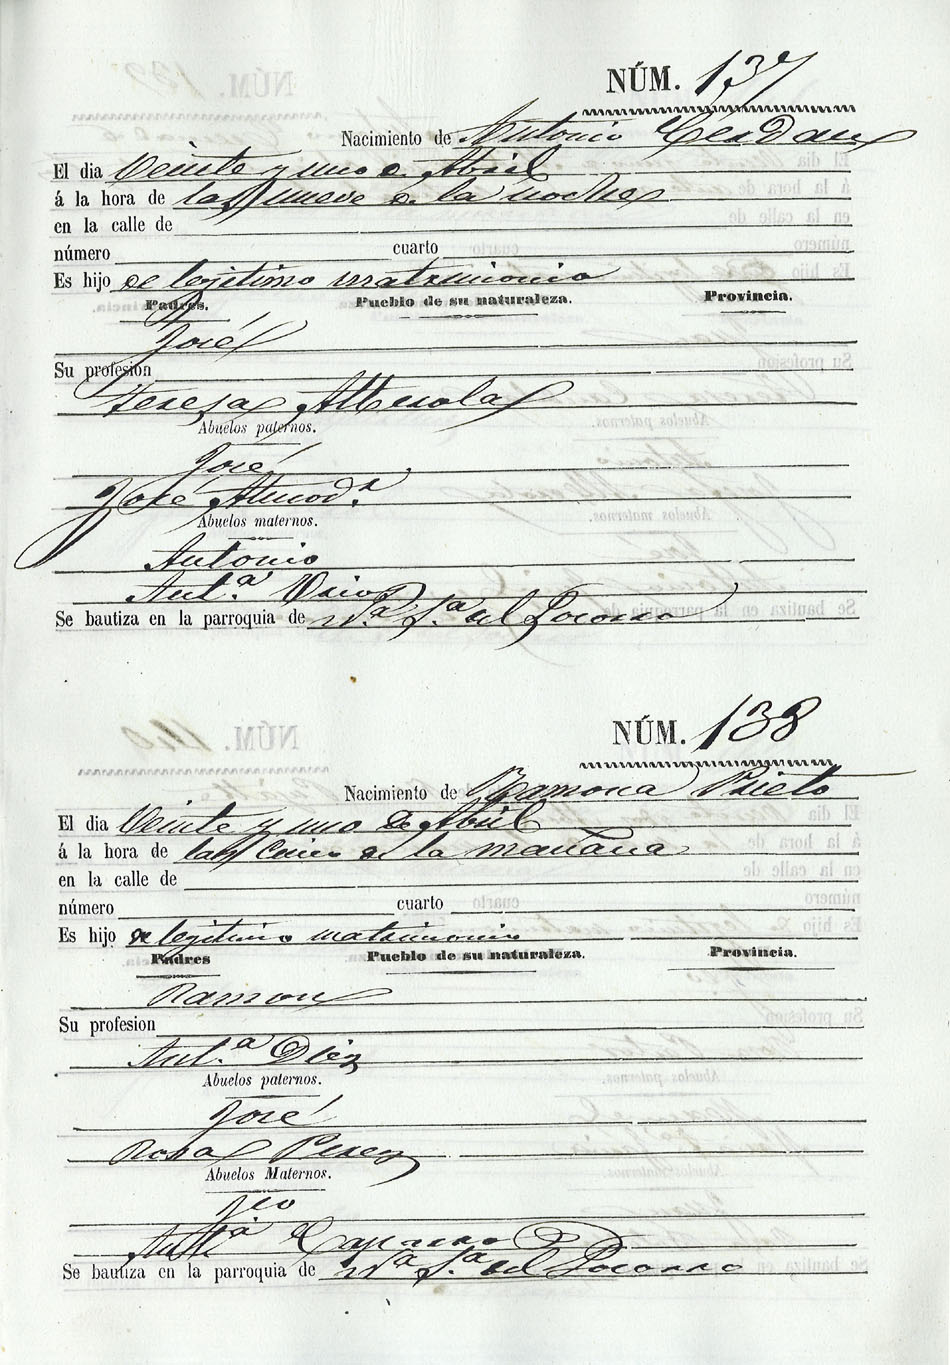 NÚM. 137
Nacimiento de Antonio Cerdan
El dia Veinte y uno de Abril
á la hora de las nueve de la noche
en la calle de
número cuarto
Es hijo de legitimo matrimonio
Padres. Pueblo de su naturaleza. Provincia.
José
Su profesion
Teresa Alberola
Abuelos paternos.
José
José
Abuelos maternos.
Antonio
Ant.ª
Se bautiza en la parroquia de N.ª S.ª del Socorro
NÚM. 138
Nacimiento de Ramona Prieto
El dia Veinte y uno de Abril
á la hora de las Cinco de la mañana
en la calle de
número cuarto
Es hijo de legitimo matrimonio
Padres Pueblo de su naturaleza. Provincia.
Ramon
Su profesion
Ant.ª Diez
Abuelos paternos.
José
Rosa Perez
Abuelos Maternos.
Se bautiza en la parroquia de N.ª S.ª del Socorro